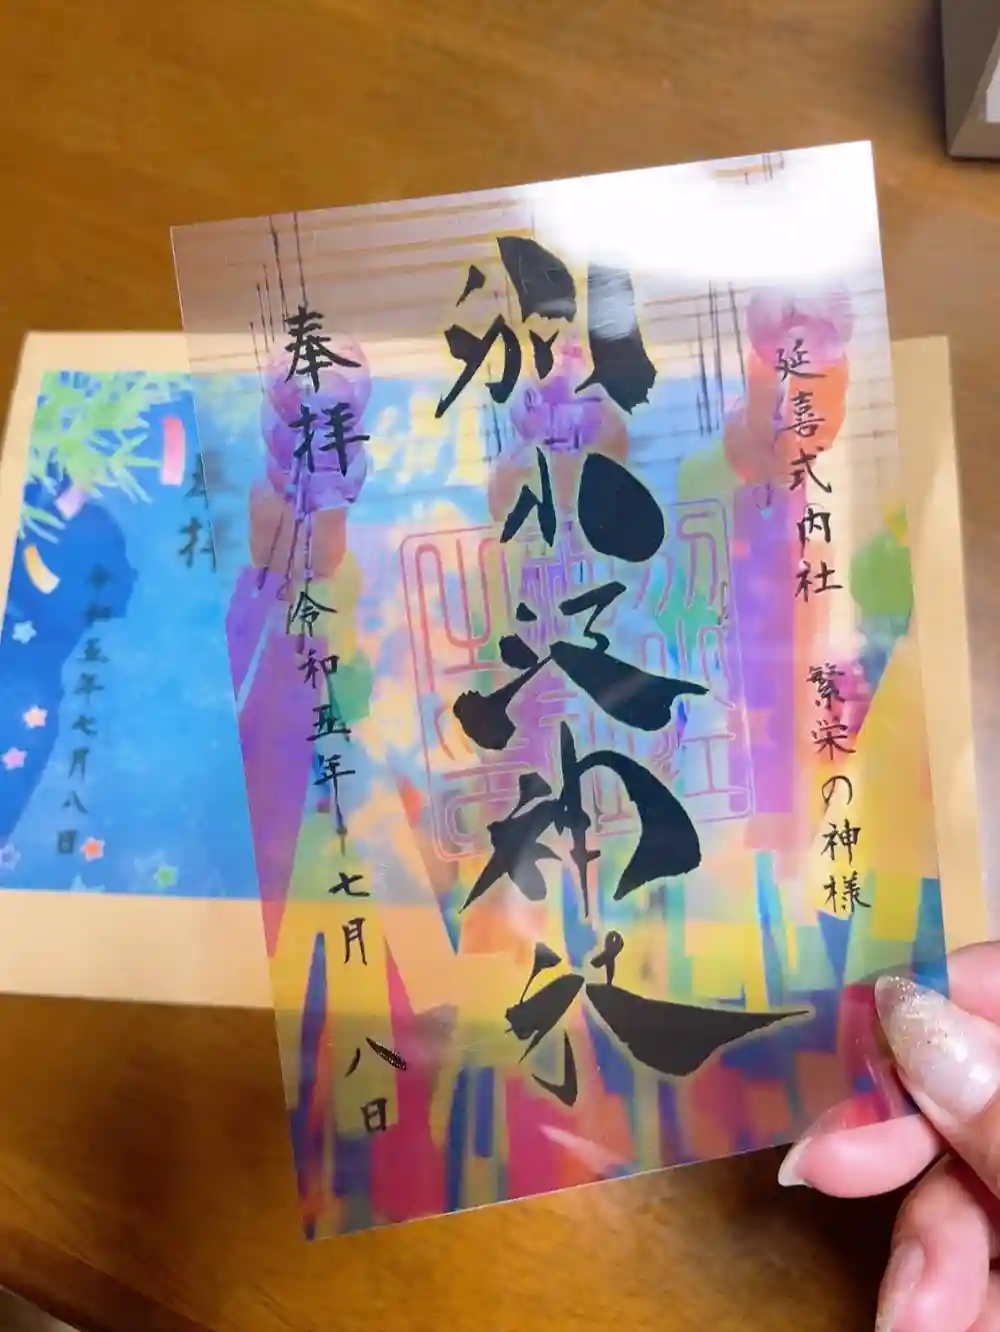 延喜式内社 繁栄の神様
別小江神社
奉拝 令和五年七月八日
奉拝
令和五年七月八日